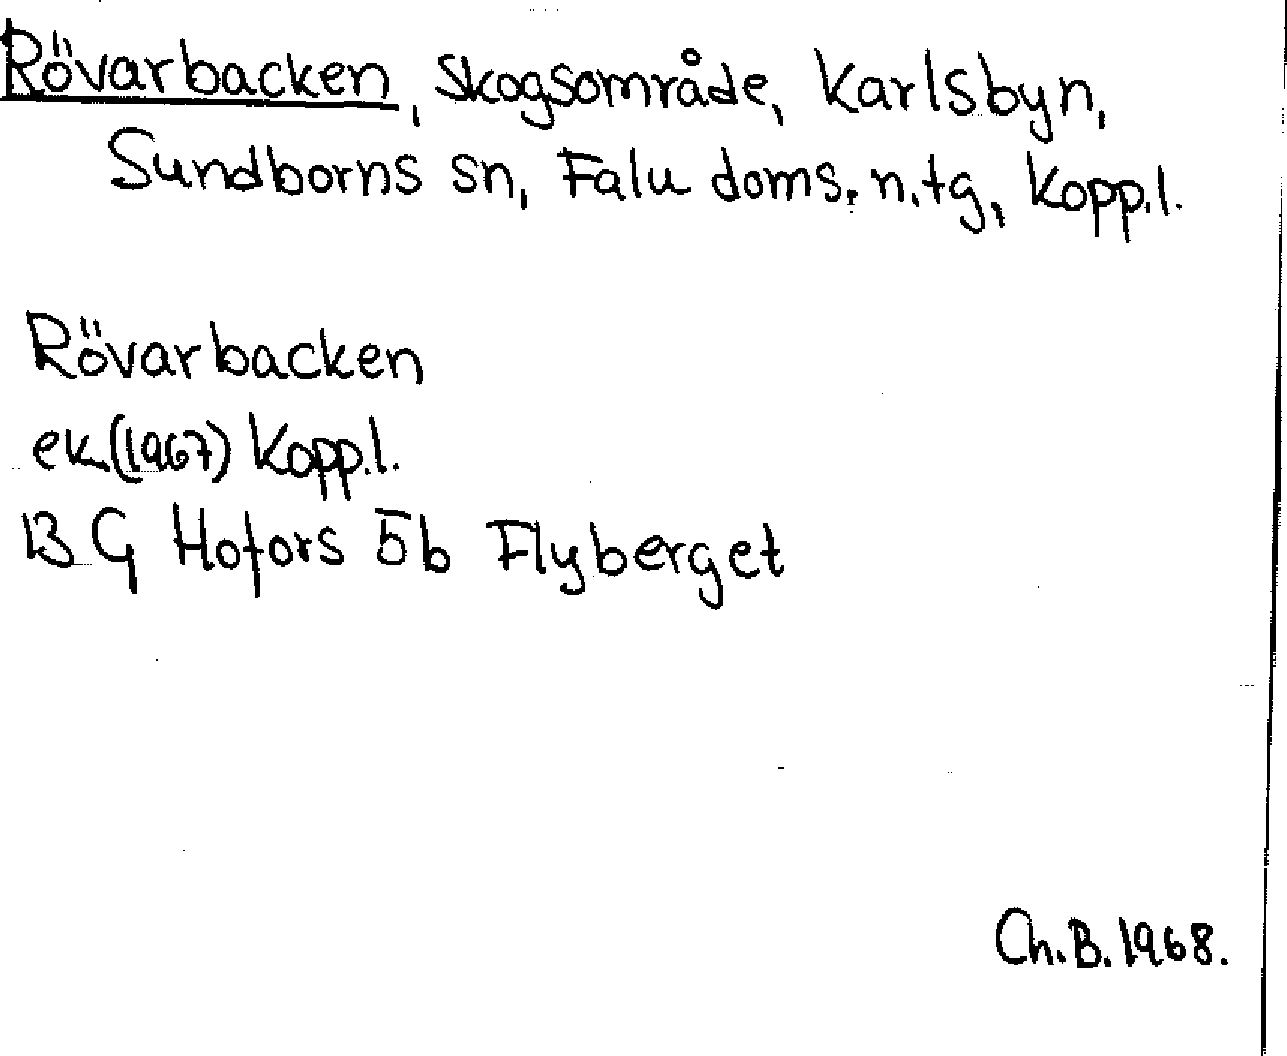 Rövarbacken, Skogsområde, Karlsbyn,
Sundborns sn, Falu doms. n. tg, Kopp.l.
Rövarbacken
ek (1967) Kopp.l.
13 G Hofors 5b Flyberget
Ch.B. 1968.